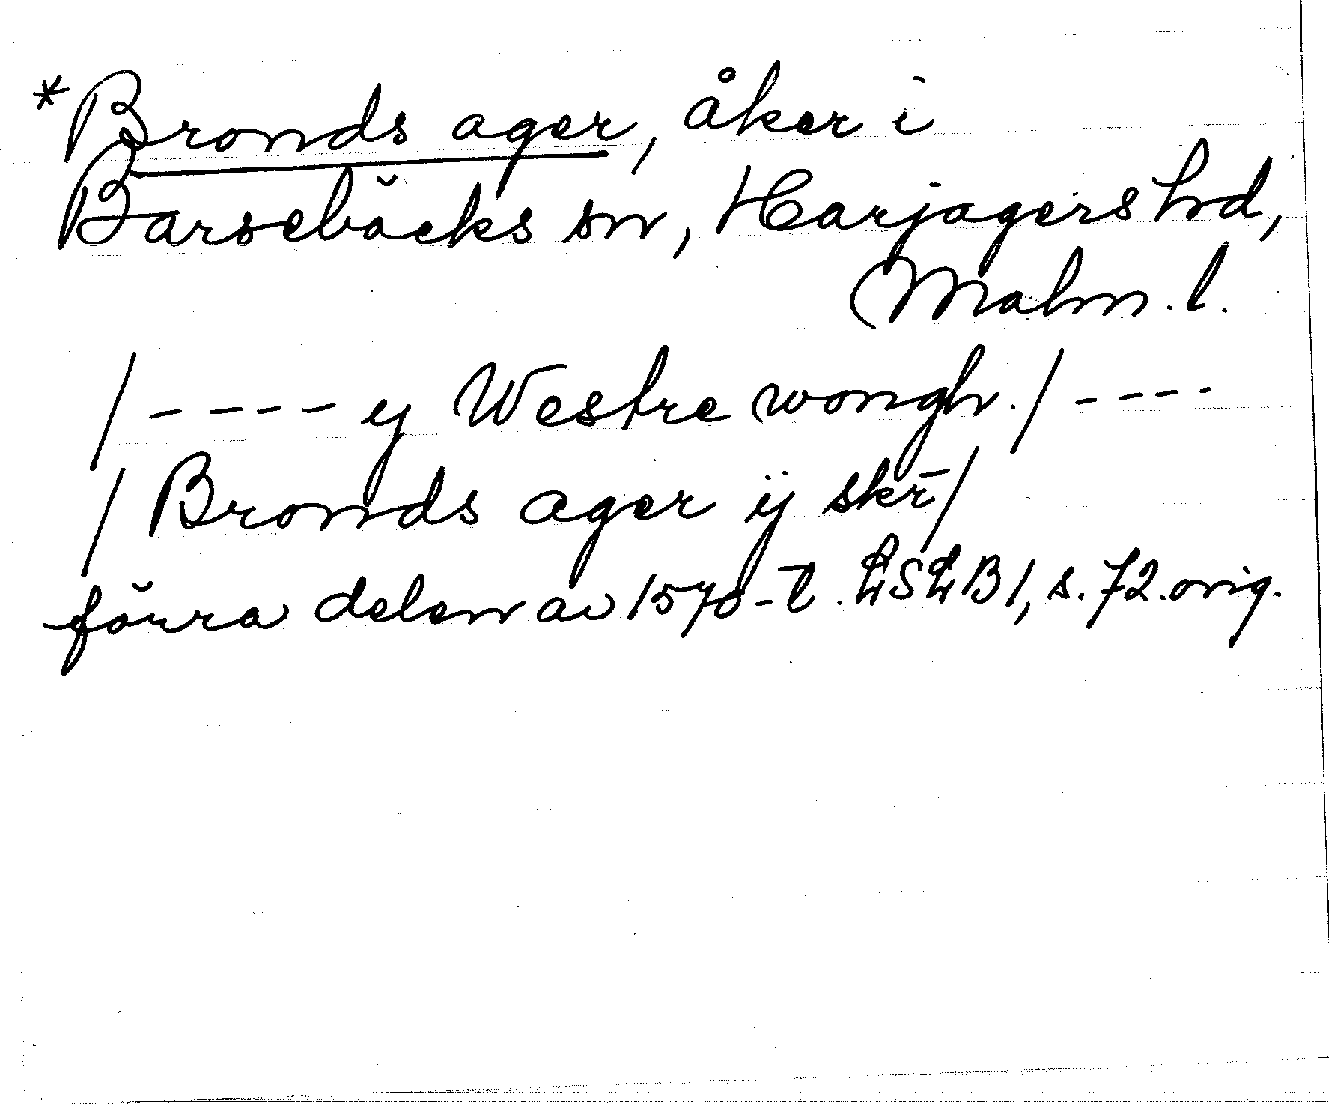 *Bronds ager, åker i
Barsebäcks sn, Harjagers hd,
Malm. l.
/---- y Westre wongh./----
/Bronds ager ij skr̄/
förra delen av 1570-t. LSLB1, s. 72. orig.